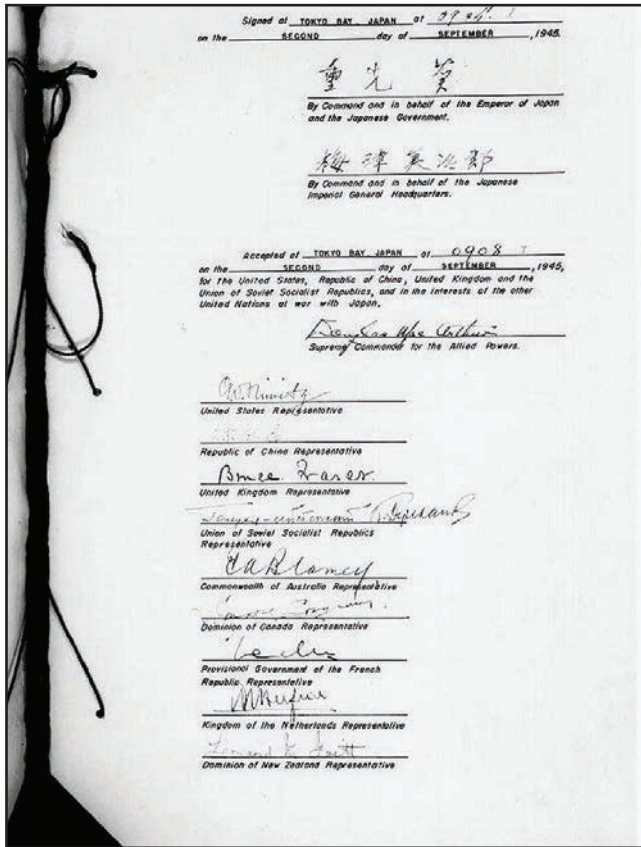 Signed at TOKYO BAY, JAPAN at 0904 I
on the SECOND day of SEPTEMBER, 1945.
重光葵
By Command and in behalf of the Emperor of Japan
and the Japanese Government.
梅津美治郎
By Command and in behalf of the Japanese
Imperial General Headquarters.
Accepted at TOKYO BAY, JAPAN at 0908 I
on the SECOND day of SEPTEMBER, 1945,
for the United States, Republic of China, United Kingdom and the
Union of Soviet Socialist Republics, and in the interests of the other
United Nations at war with Japan.
Douglas MacArthur
Supreme Commander for the Allied Powers.
C.W. Nimitz
United States Representative
Republic of China Representative
Bruce Fraser
United Kingdom Representative
Union of Soviet Socialist Republics
Representative
T.A. Blamey
Commonwealth of Australia Representative
Dominion of Canada Representative
Provisional Government of the French
Republic Representative
Kingdom of the Netherlands Representative
Dominion of New Zealand Representative